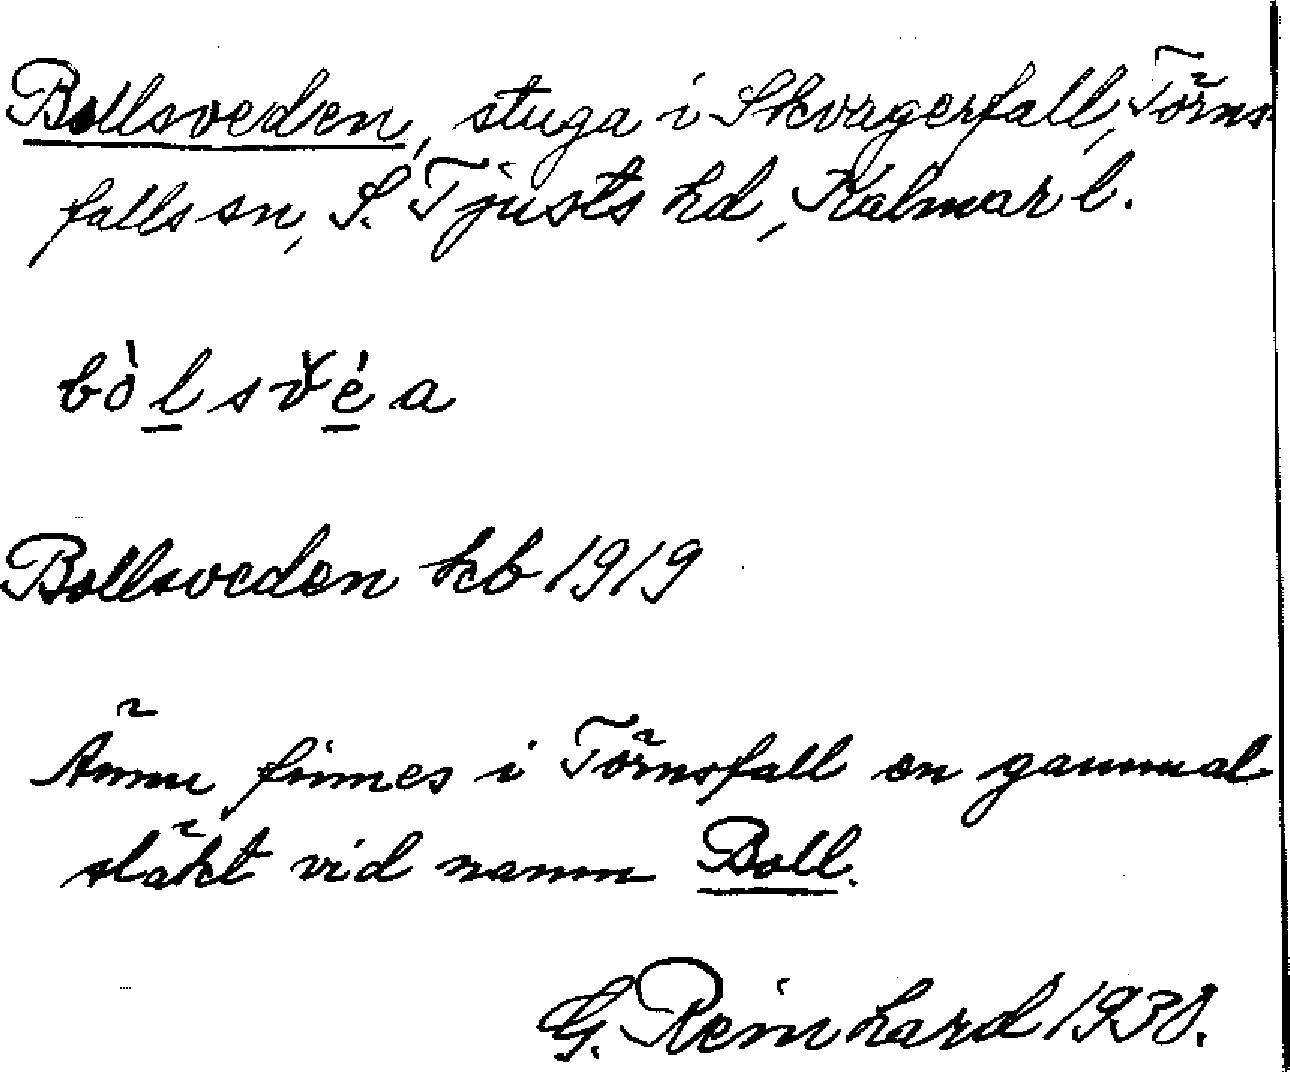 Bollsveden, stuga i Skvagerfall, Törns
falls sn, S. Tjusts hd, Kalmar l.
bòlsv̆éa
Bollsveden kb 1919
Ännu finnes i Törnsfall en gammal
släkt vid namn Boll.
G. Reinhard 1938.